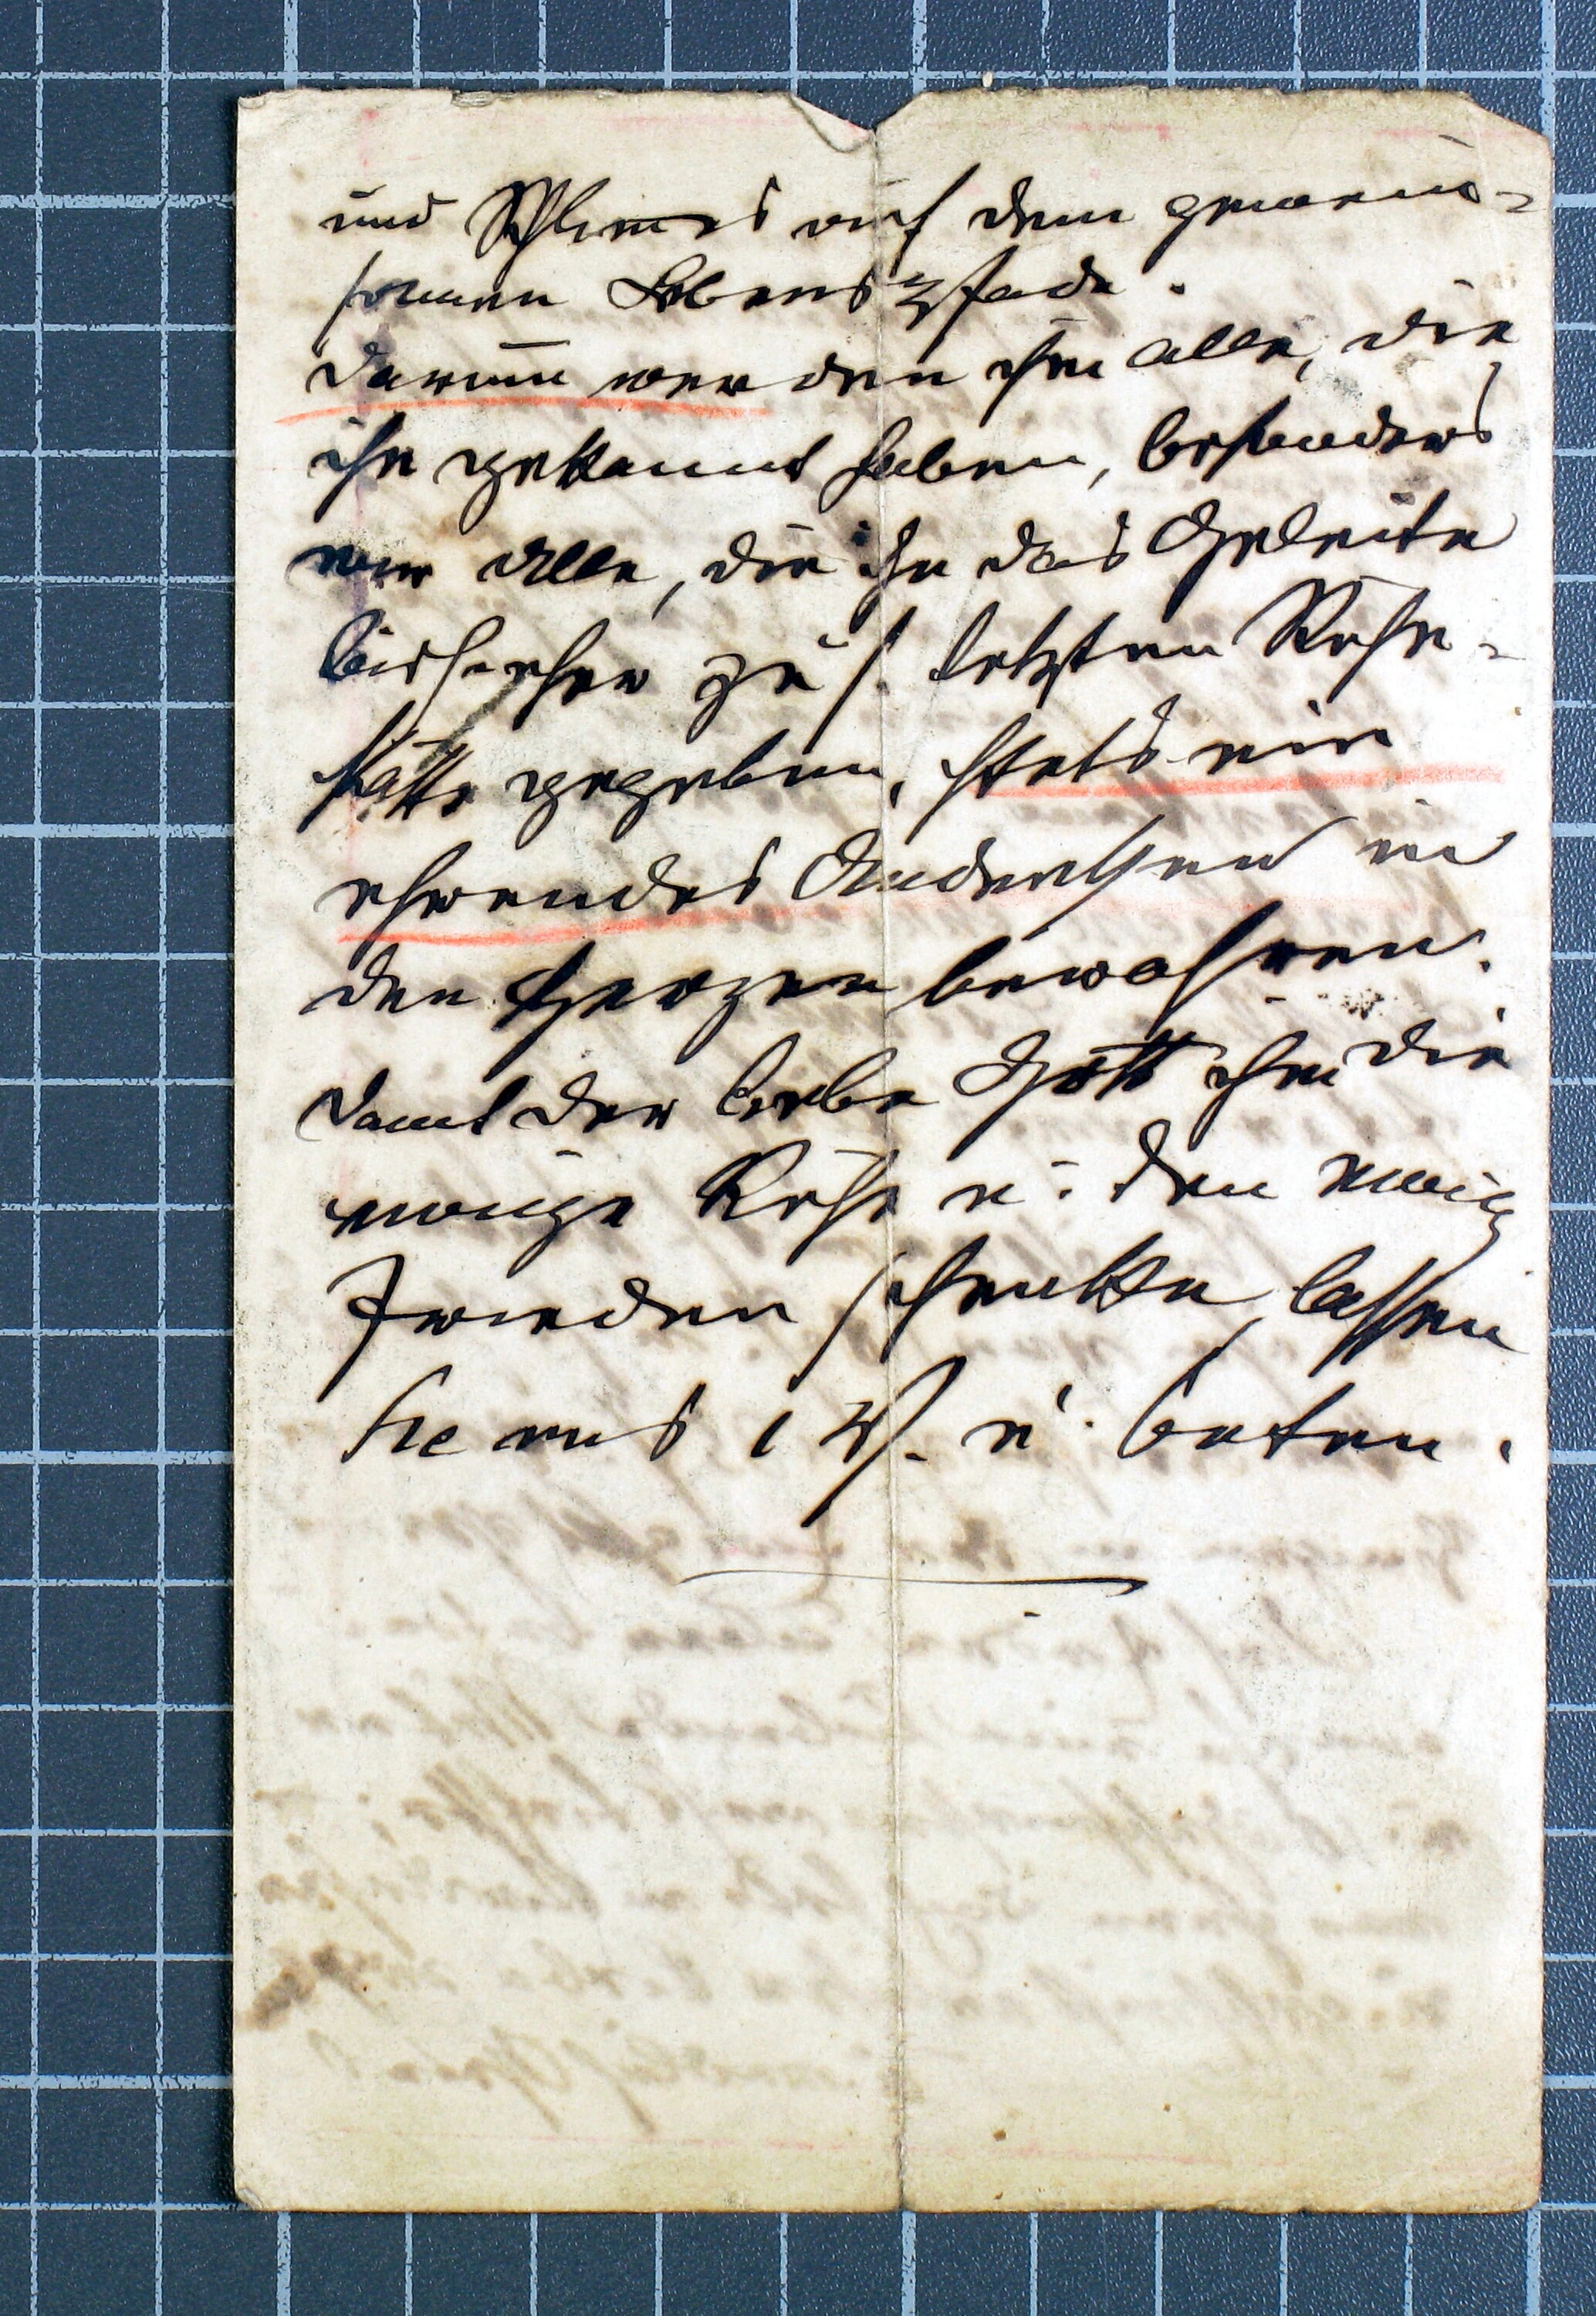 und Schlimmes auf dem gemein-
samen Lebenspfade.
Darum werden ihm alle, die
ihn gekannt haben, besonders
wir Alle, die ihm das Geleite
bisher zu s. letzten Ruhe-
stätte gegeben, stets ein
ehrendes Andenken in
den Herzen bewahren.
Damit der liebe Gott ihm die
ewige Ruhe u. den ewig
Frieden schenke, lassen
Sie uns 1 V. u. beten.